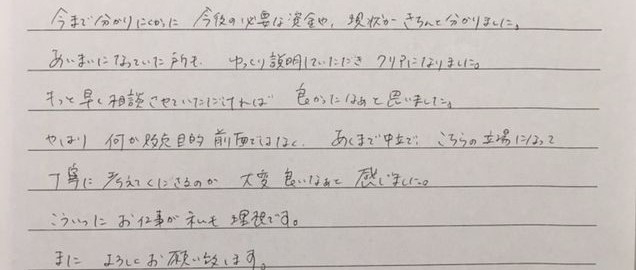 今まで分かりにくかった 今後の必要な資金や、現状がきちんと分かりました。
あいまいになっていた所も、ゆっくり説明していただき クリアになりました。
もっと早く相談させていただければ 良かったなぁと思いました。
やはり 何か 目的 前面ではなく、あくまで中立で、こちらの立場になって
丁寧に 考えてくださるのが 大変 良いなぁと 感じました。
こういった お仕事が 私も 理想です。
また よろしくお願い致します。